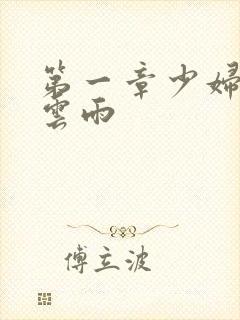 第一章少婦
雲雨
傅立波